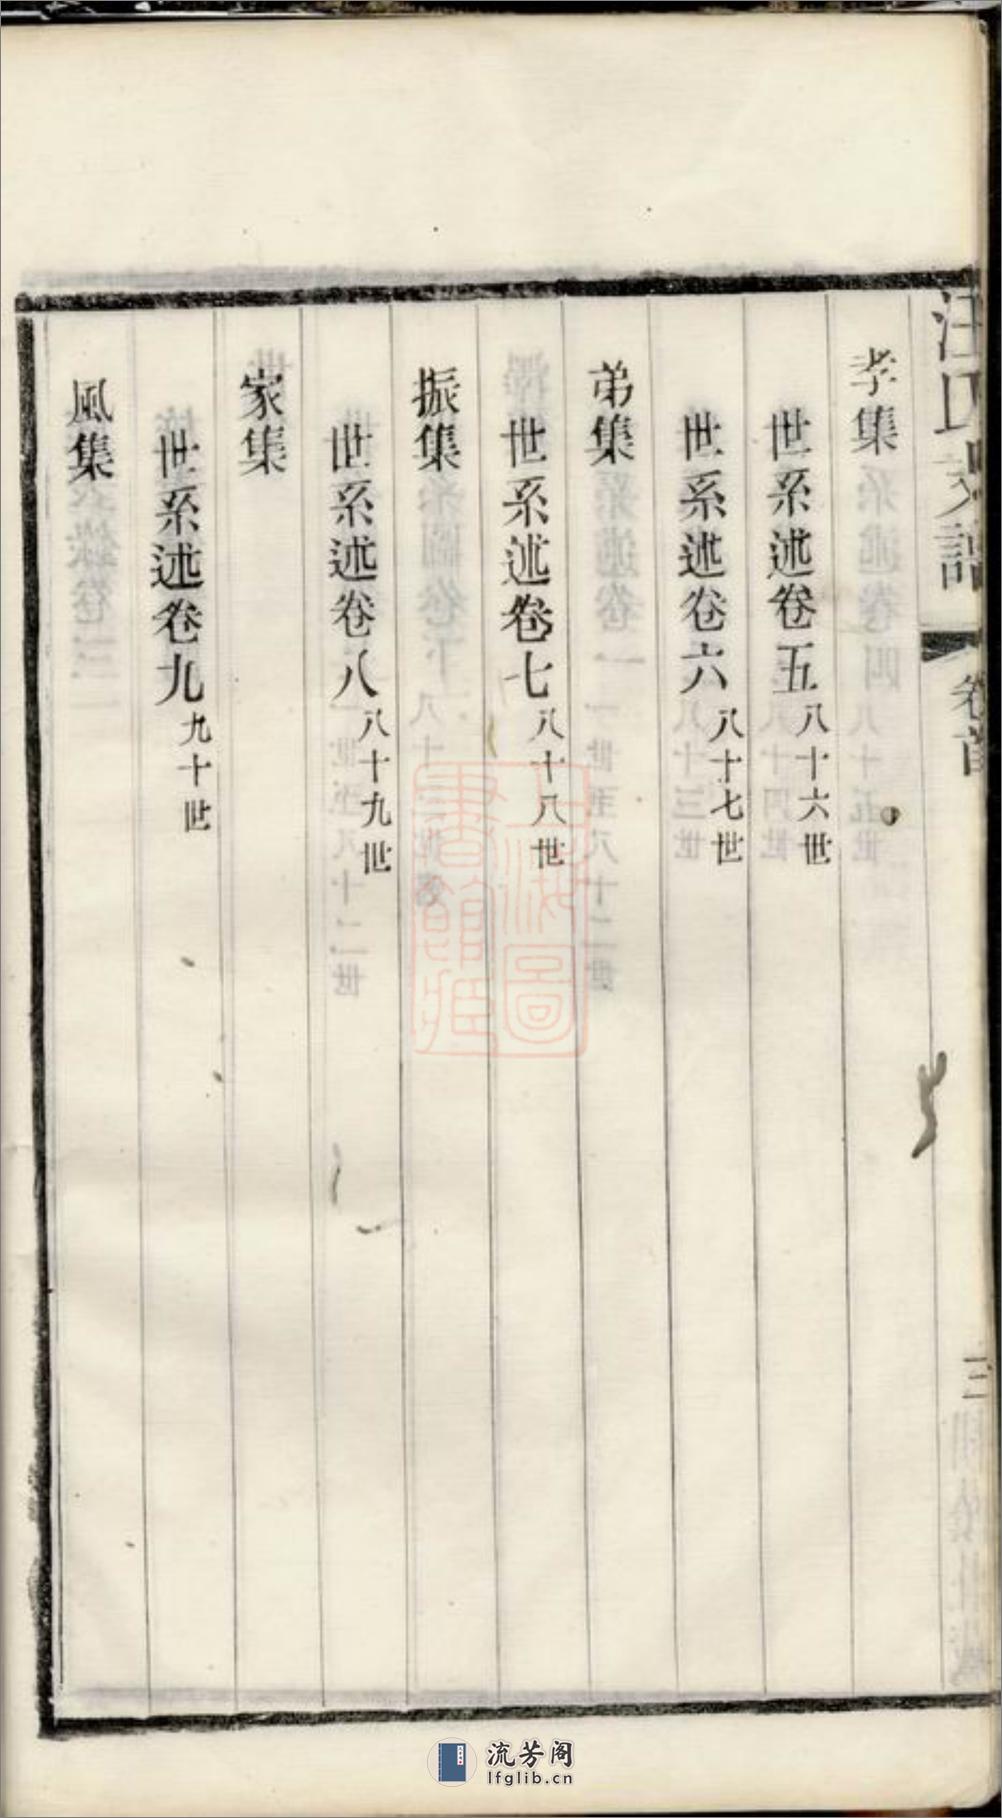 孝集
世系述卷五八十六世
世系述卷六八十七世
弟集
世系述卷七八十八世
振集
世系述卷八八十九世
家集
世系述卷九九十世
風集
汪氏支譜
卷首
三
上海圖書館藏
流芳阁
lfglib.cn